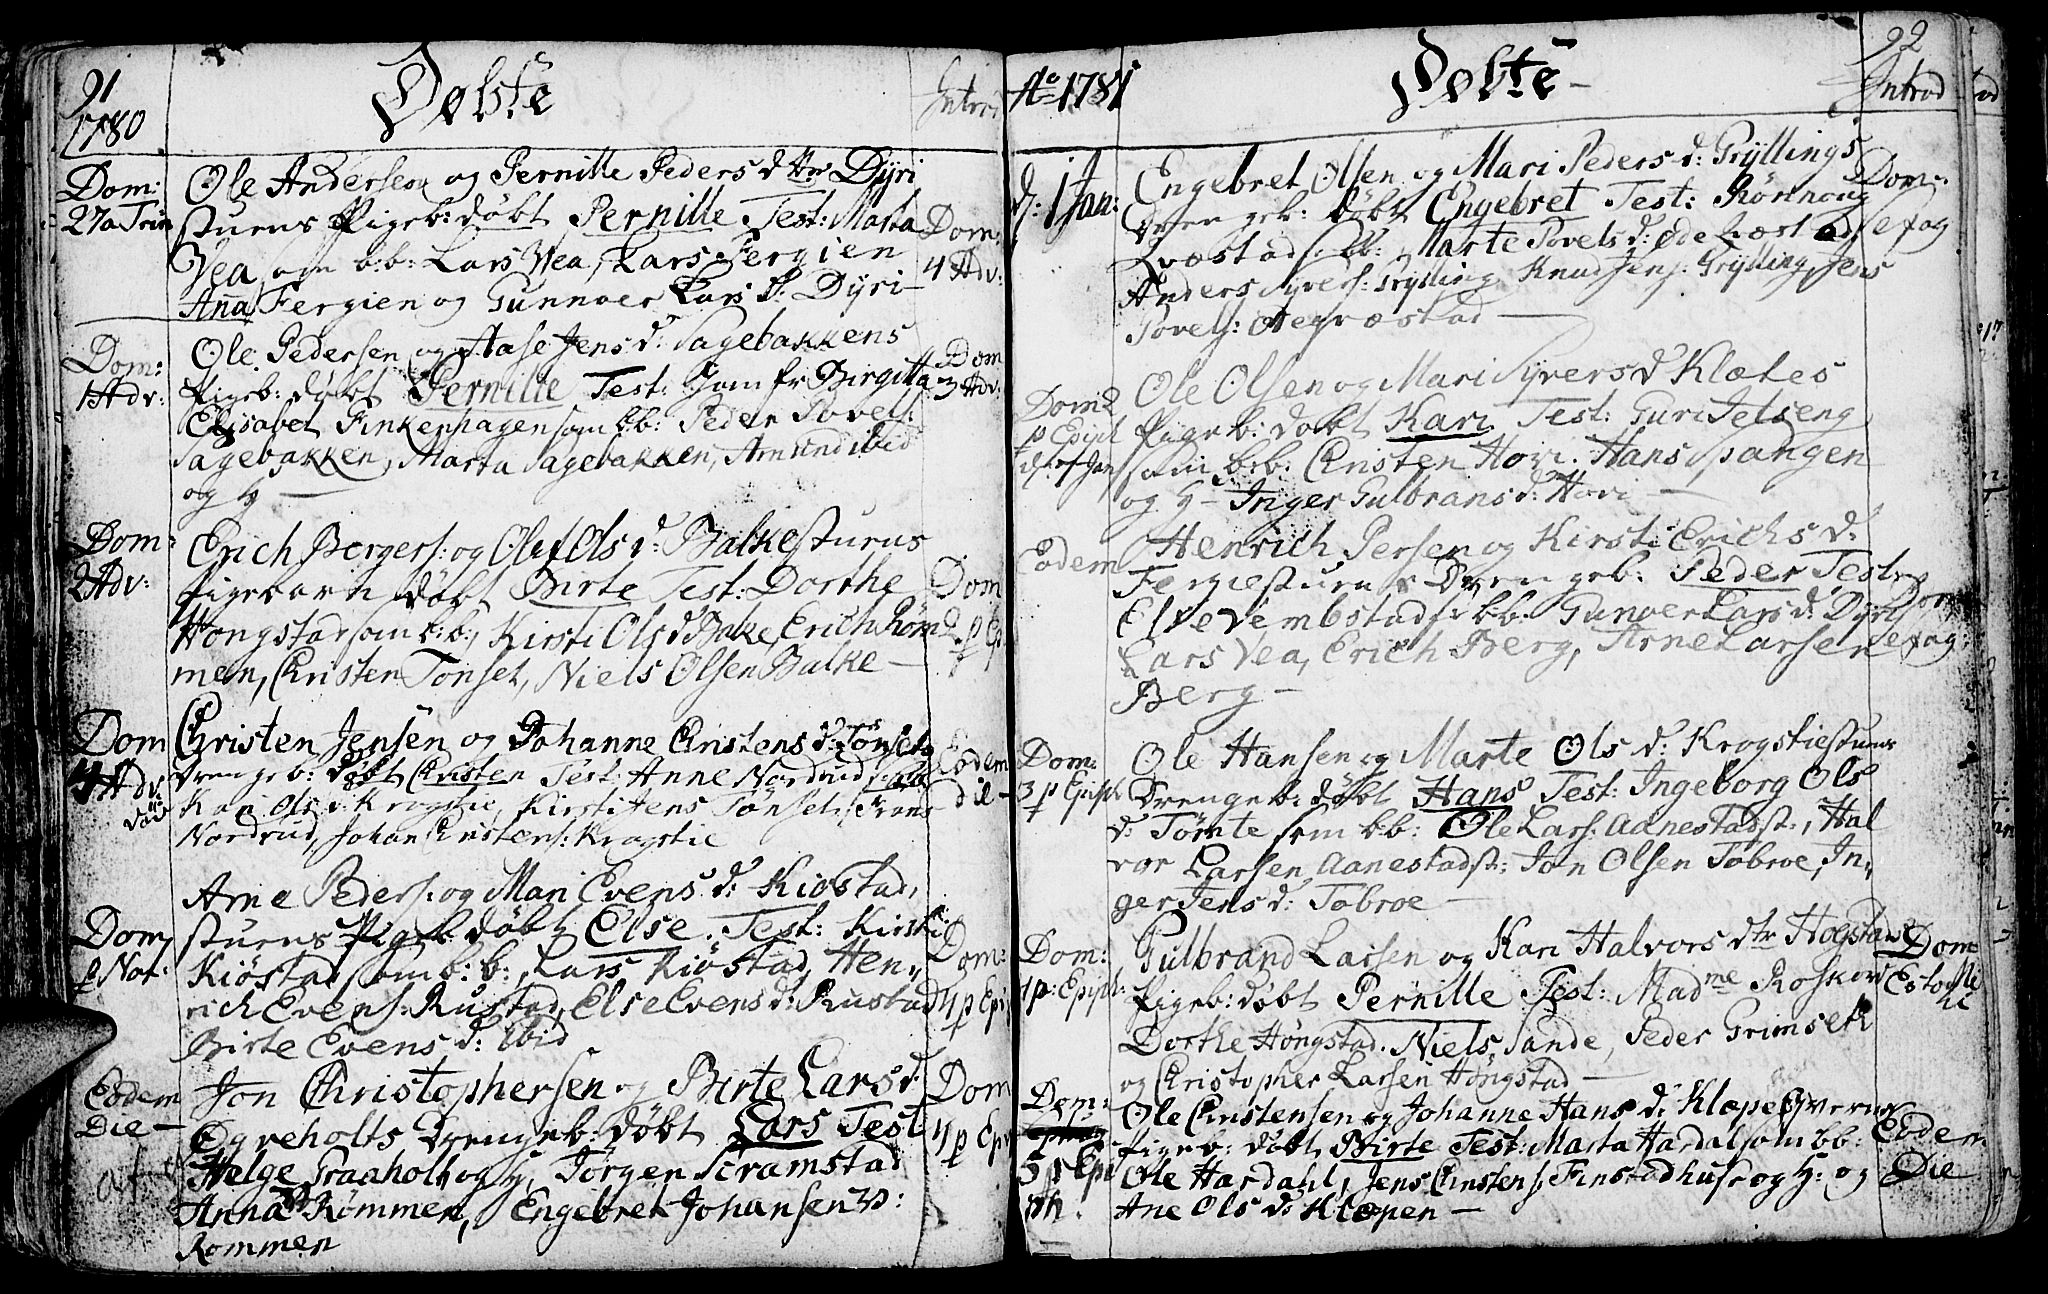 91
1780
Døbte
Introd
Dom:
27 a Trin
Ole Andersen og Pernille Peders dtr Dyri
stuens Pigeb: døbt Pernille Test: Marta
Vea, om b:b: Lars Vea, Lars Fergien
Ana Fergien og Gunnoer Lars d: Dyri-
Dom:
4 Adv:
Dom:
1 Adv:
Ole Pedersen og Aase Jens d: Sagebakkens
Pigeb: døbt Pernille Test: Jomfr Birgitta
Elisabet Finkenhagen som bb: Peder Povels:
Sagebakken, Marta Sagebakken, Amund ibid
og H —
Dom
3 Adv:
Dom:
2 Adv:
Erich Bergers: og Olef Ols d: Balkestuens
Pigebarn døbt Birte Test: Dorthe
Hongstad som b:b:, Kirsti Ols d Balke, Erich Røm
men, Christen Tonset, Niels Olsen Balke —
Dom
2 p Ep
Dom
4 Adv:
Christen Jensen og Johanne Christens d: Tønset
Drengeb: døbt Christen Test: Anne Nordrud
Kari Ols d: Krogstie, Kirsti Jens Tønset
Nordrud, Johan Christens: Krogstie
Eodem
die —
Dom
p Nat:
Arne Peders: og Mari Evens d: Kiøstad,
stuens Pigeb: døbt Else. Test: Kirsti
Kiøstad som b:b:, Lars Kiøstad, Hen,,
rich Evens: Rustad, Else Evens d: Rustad
Birte Evens d: Ibid
Dom:
4 p Epi
Eodem
Die —
Jon Christophersen og Birte Lars d.
Ogreholts Drengeb: døbt Lars Test
Helge Graaholt og H, Jørgen Skramstad
Anna Rømmen, Engebret Johansen
Rommen
Dom
4 p Ep
Ao 1781
Døbte —
92
Introd
d: 1 Jan:
Engebret Olsen og Mari Peders d: Gryllings
Drengeb: døbt Engebret Test: Rønnoug
Qvæstad s: bb:, Marte Povels d: øde Qvæstad
Anders Syvers: Grylling, Knud Jens: Grylling, Jens
Povels: Qvæstad —
Dom:
efag
Dom 2
p Epiph
d: 7 Jan
Ole Olsen og Mari Syvers d Klætes
Pigeb: døbt Kari Test: Guri Jetseng
som b:b: Christen Hovi. Hans Spangen
og H — Inger Gulbrans d: Hovi —
Eodem
Henrich Persen og Kirsti Erichs d:
Fergiestuens Drengeb: Peder Test
Else Vembstad s: bb: Gunoer Lars d: Dyri
Lars Vea, Erich Berg, Arne Larsen
Berg —
Dom
efag:
Dom:
3 p Epiph
Ole Hansen og Marte Ols d: Krogstiestuens
Drengeb: døbt Hans Test: Ingeborg Ols
d: Tømte som bb: Ole Lars: Aanestadst:, Hal
vor Larsen Aanestadst: Jon Olsen Tobroe, In,,
ger Jens d: Tobroe —
Dom:
4 p: Epiph:
Gulbrand Larsen og Kari Halvors dtr Hogstad
Pigeb: døbt Pernille Test: Madme Roskov
Dorthe Høngstad. Niels Sande, Peder Grimset
og Christopher Larsen Høngstad —
Dom
Estomi
hi
Dom:
5 p Epi
ph.
Ole Christensen og Johanne Hans d: Klæpe
Pigeb: døbt Birte Test: Marta Hardal som bb:
Ole Hardahl, Jens Christens: Finstadhuse og H: og
Ane Ols d: Klæpen —
Eodem
Die